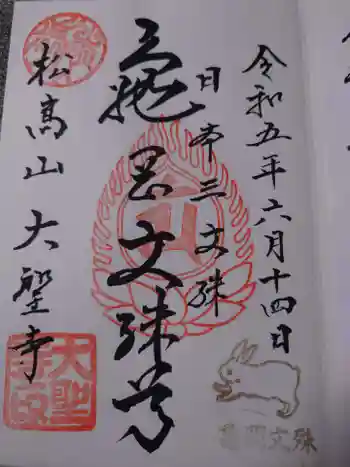 令和五年六月十四日
日本三文殊
亀岡文殊尊
松高山大聖寺
大聖
亀岡文殊